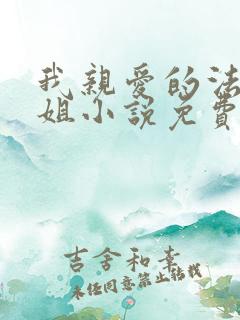 我親愛的法
姐小說免費
吉舍和幸
未经同意禁止转载